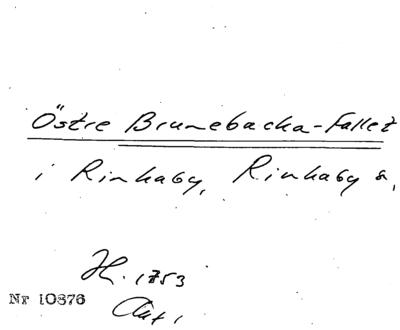 Östre Brunebacka-Fallet
i Rinkaby, Rinkaby s,
H. 1753
Nr 10876